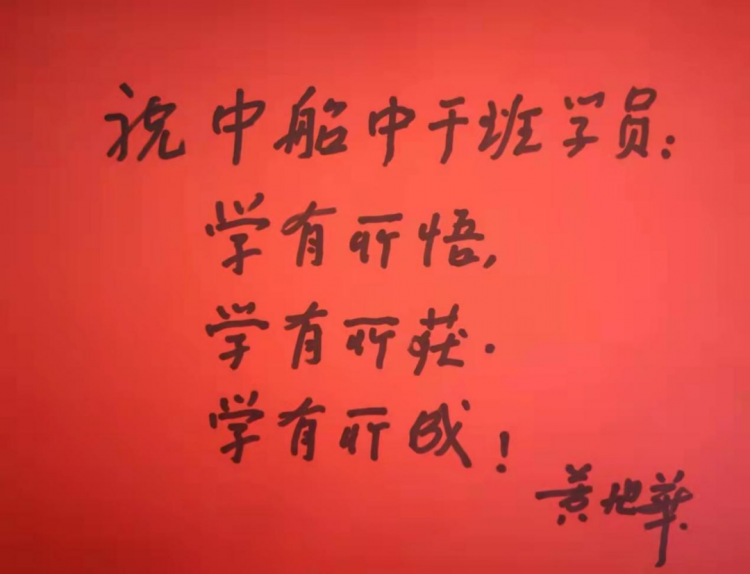 祝中船中干班学员：
学有所悟，
学有所获．
学有所成！
黄旭华